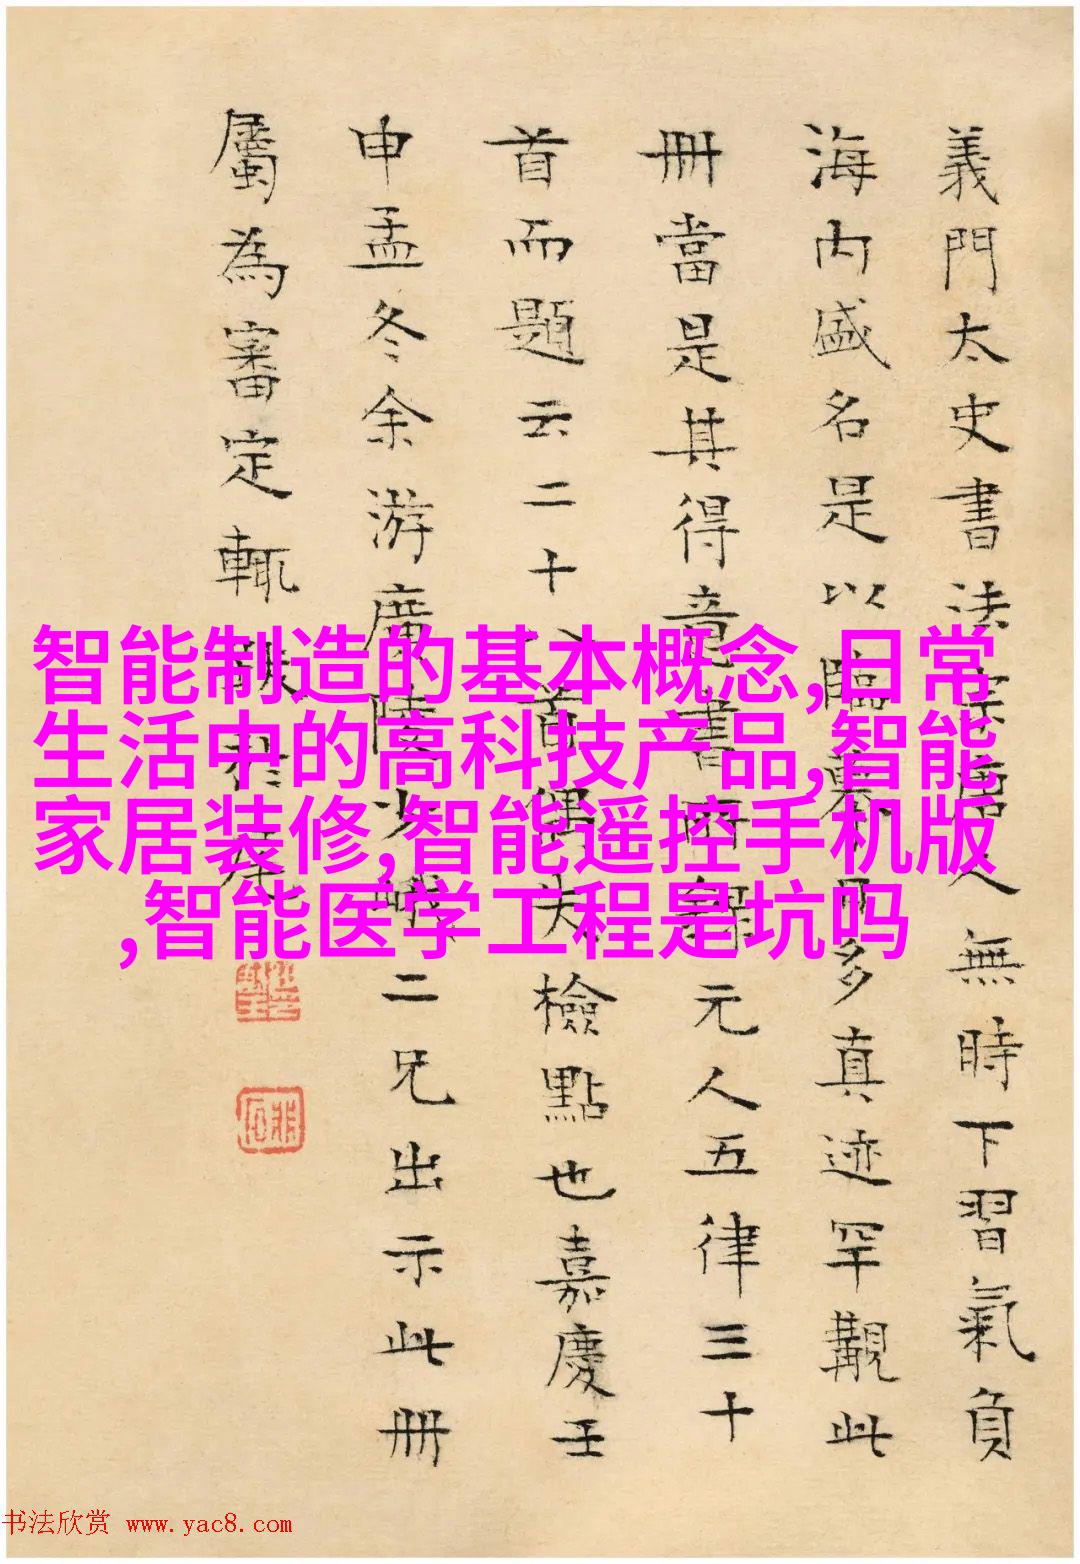 義門太史書法宗唐人無時下習氣負
海内盛名是以臨摹多真迹罕覯此
冊當是其得意書所錄元人五律三十
首而題云二十八首偶失檢點也嘉慶壬
申孟冬余游廣陵少峨二兄出示此冊
屬為審定輒跋於尾
智能制造的基本概念,日常
生活中的高科技产品,智能
家居装修,智能遥控手机版
,智能医学工程是坑吗
书法欣赏 www.yac8.com